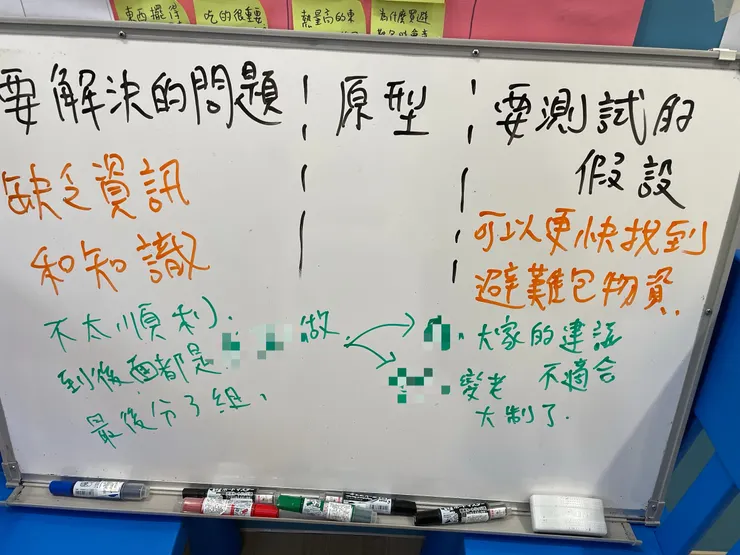 東西擺得
吃的很重要
熱量高的東
為什麼買避
要解決的問題
原型
要測試的
假設
缺乏資訊
和知識
可以更快找到
避難包物資
不太順利.
到後面都是 做
最後分了組.
大家的建議
變老 不適合
大制了.